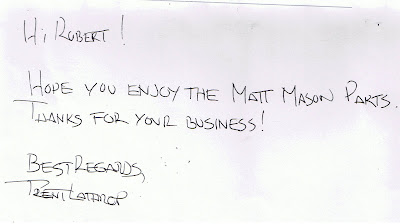 Hi Robert!
Hope you enjoy the Matt Mason Parts.
Thanks for your business!
Best Regards,
Trent Lathrop